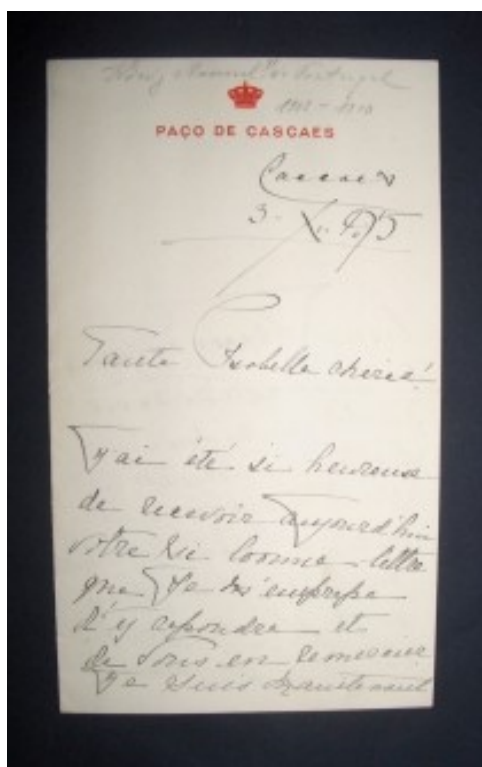 König Manuel v. Portugal
PAÇO DE CASCAES
Cascaes
Tante Isabelle chérie!
J'ai été si heureuse
de recevoir aujourd'hui
votre si bonne lettre
que je m'empresse
d'y repondre et
de vous en remercier
Je suis maintenant